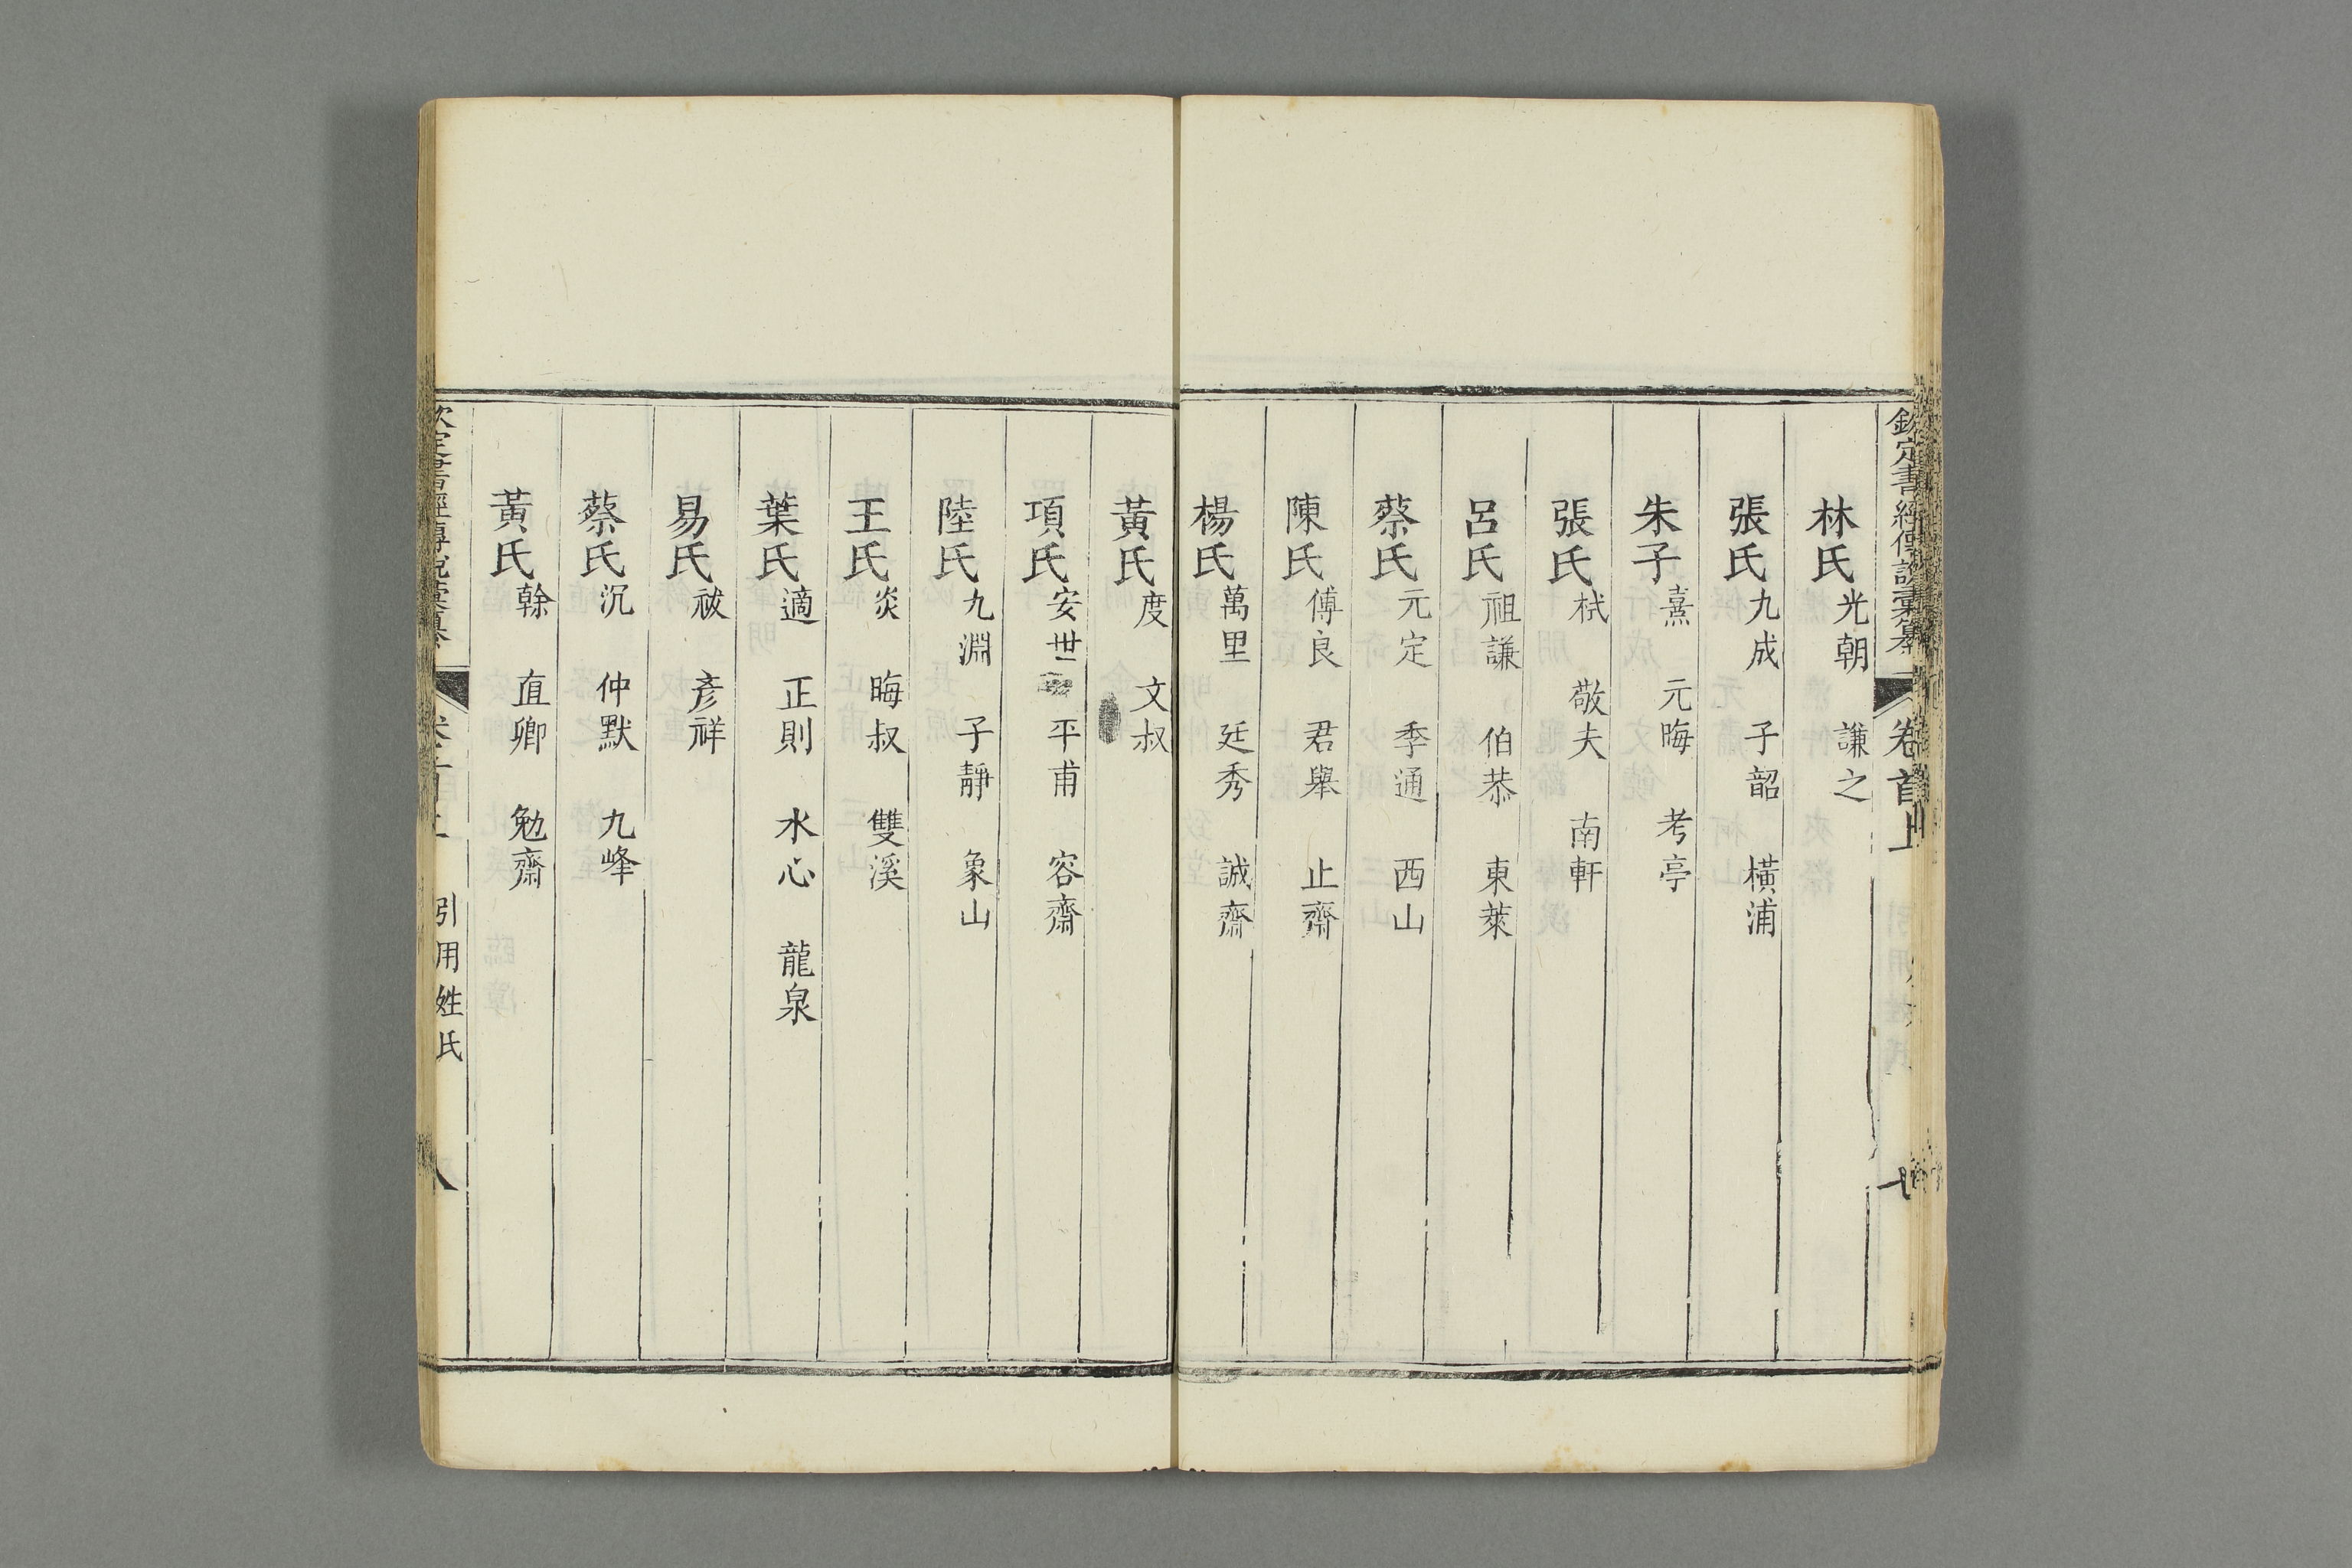 欽定書經傳說彙纂 卷首上
林氏光朝 謙之
張氏九成 子韶 橫浦
朱子熹 元晦 考亭
張氏栻 敬夫 南軒
呂氏祖謙 伯恭 東萊
蔡氏元定 季通 西山
陳氏傅良 君舉 止齋
楊氏萬里 廷秀 誠齋
黃氏度 文叔
項氏安世 平甫 容齋
陸氏九淵 子靜 象山
王氏炎 晦叔 雙溪
葉氏適 正則 水心 龍泉
易氏祓 彥祥
蔡氏沉 仲默 九峰
黃氏榦 直卿 勉齋
欽定書經傳說彙纂 卷首上 引用姓氏 八